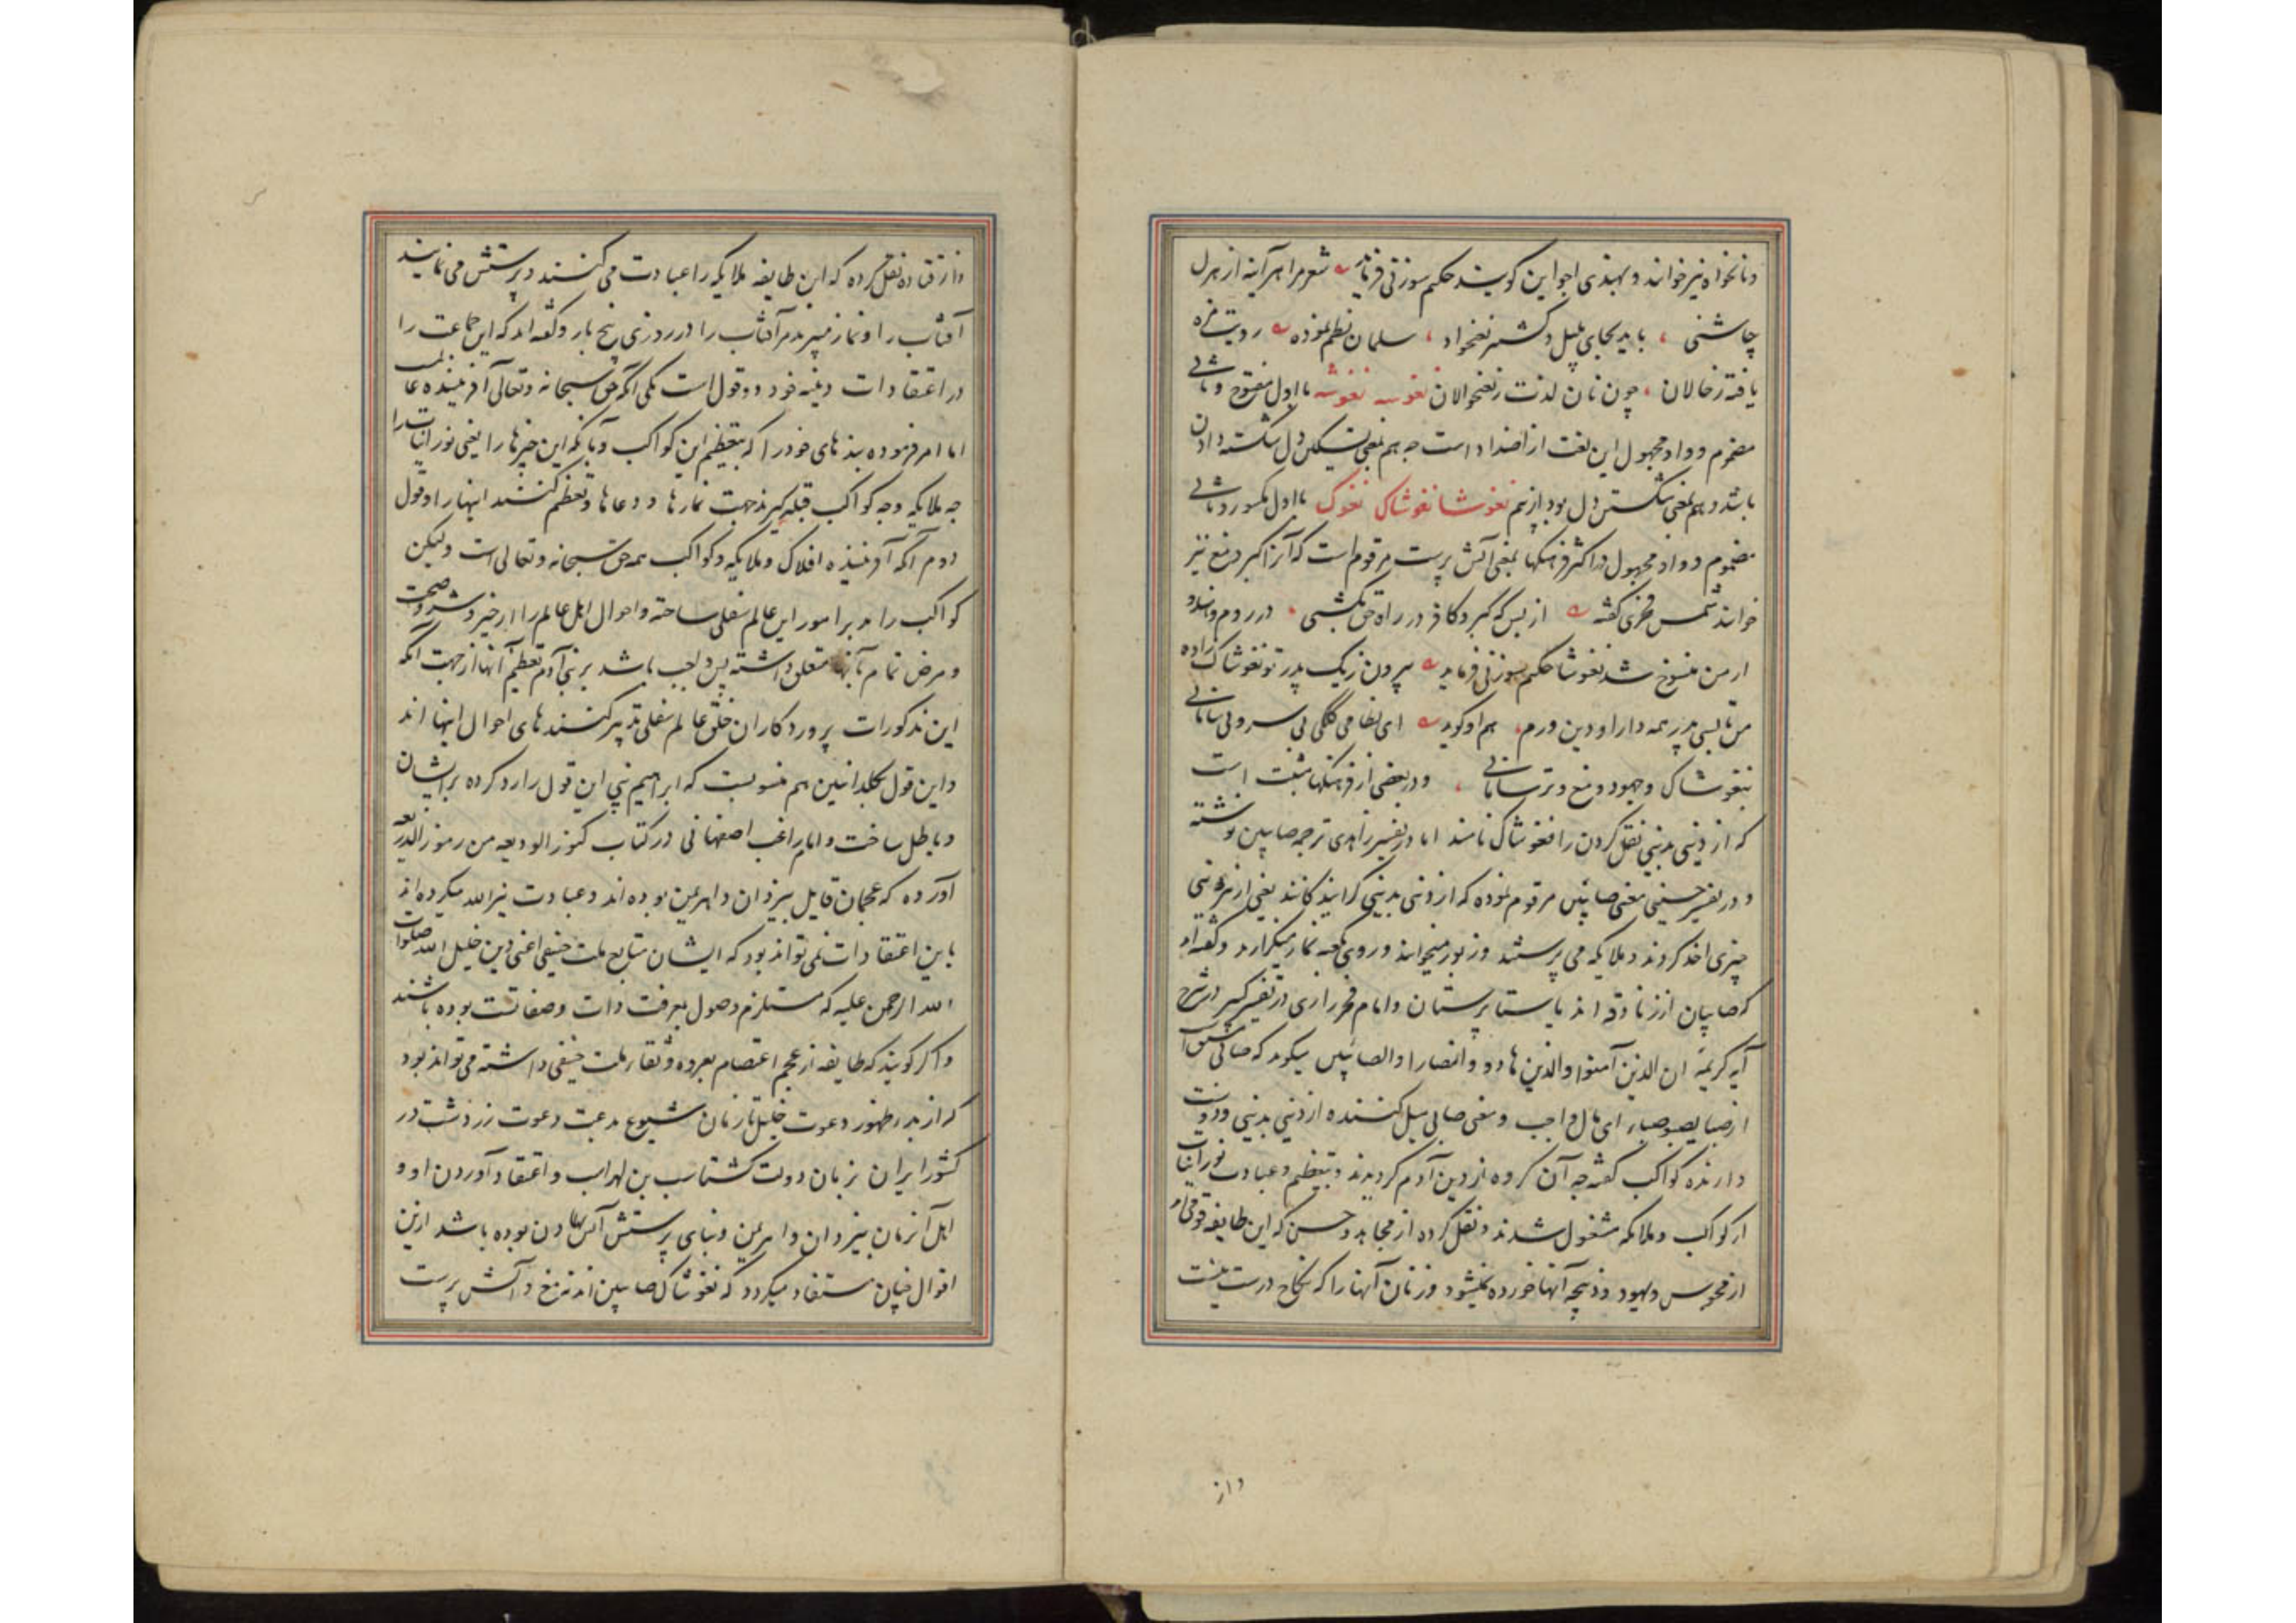 ونانخواه نیز خوانند و بهندی اجواین گویند حکیم سوزنی فرماید شعر مرا هر آینه از هزل
چاشنی باید بجای پلپل و کشنیز نغنخواد سلمان نظم نموده رویت مزه
یافته ز خالان چون نان لذت ز نغنخوالان نغوسه نغوشه با اول مفتوح و ثانی
مضموم و واو مجهول این لغت از اضداد است چه هم بمعنی تسکین دل شکسته دادن
باشد و هم بمعنی شکستن دل بود از نیم نغوشا نغوشاک نغوک با اول مکسور و ثانی
مضموم و واو مجهول در اکثر فرهنگها بمعنی آتش پرست مرقوم است که آنرا کبر و مغ نیز
خوانند شمس فخری گفته از بس که کبر و کافر در راه حق بکشتی در روم و
ارمن منسوخ شد نغوشا حکیم سوزنی فرماید پدر تو نغوشاک زاده
من پدر همه دارا و دین ورم هم او گوید ای نظامی کلکی بی سر و بی سامانی
بنغوشاک و جهود و مغ و ترسا مانی و در بعضی از فرهنگها مثبت است
که از دینی بدینی نقل کردن را نغوشاک نامند اما در تفسیر زاهدی ترجمه صابیین نوشته
و در تفسیر حسینی معنی صابئین مرقوم نموده که از دینی بدینی گرایند یعنی از هر دینی
چیزی اخذ کردند و ملایکه می پرستند و زبور میخوانند و روی بکعبه نماز میگزارند و گفته اند
که صابیان از زنادقه اند یا ستاره پرستان و امام فخر رازی در تفسیر کبیر در شرح
آیه کریمه ان الذین آمنوا والذین هادو والنصارا والصابئین میگوید که صابی مشتق
از صبا یصبو صباء ای مال و احب و معنی صابی میل کننده از دینی بدینی و دوست
دارنده کواکب گفته چه آن گروه از دین آدم گردیدند و بتعظیم و عبادت نورانیات
از کواکب و ملایکه مشغول شدند و نقل کرده از مجاهد و حسن که این طایفه قومی اند
از مجوس و یهود و ذبیحه آنها خورده نمیشود و زنان آنها را که نکاح درست نیست
واز
واز قتاده نقل کرده که این طایفه ملایکه را عبادت می کنند و پرستش می نمایند
آفتاب را و نماز میبرند مر آفتاب را در روزی پنج بار و گفته اند که این جماعت را
در اعتقادات دینیه خود دو قول است یکی آنکه حق سبحانه وتعالی آفریننده عالمست
اما امر فرموده بندهای خود را که بتعظیم این کواکب و بآنکه این چیزها را یعنی نورانیات را
چه ملایکه و چه کواکب قبله گیرند جهت نمازها و دعاها و تعظیم کنند اینها را و قول
دوم آنکه آفریننده افلاک و ملایکه و کواکب همه حق سبحانه و تعالی است ولیکن
کواکب را مدبر امور این عالم سفلی ساخته و احوال اهل عالم را از خیر و شر و صحت
و مرض تمام بآنها متعلق داشته پس واجب باشد بر بنی آدم تعظیم آنها از جهت آنکه
این مذکورات پروردگاران خلق عالم سفلی تدبیر کنندهای احوال اینها اند
و این قول بکلدانیین هم منسوبست که ابراهیم نبی این قول را رد کرده بر ایشان
و باطل ساخت و امام راغب اصفهانی در کتاب کنوز الودیعه من رموز الذریعه
آورده که عجمان قایل بیزدان و اهریمن بوده اند و عبادت غیر الله میکرده اند
باین اعتقادات نمی تواند بود که ایشان متابع ملت حنیفی اعنی دین خلیل الله صلوات
الله الرحمن علیه که مستلزم وصول بمعرفت ذات و صفاتست بوده باشند
و اگر گویند که طایفه از عجم اعتصام بعروه وثقای ملت حنیفی داشته می تواند بود
که از بدو ظهور دعوت خلیل تا زمان شیوع بدعت دعوت زردشت در
کشور ایران بزمان دولت گشتاسب بن لهراسب و اعتقاد آوردن او و
اهل آنزمان بیزدان و اهریمن و بنای پرستش آتش نهادن بوده باشد از این
اقوال چنان مستفاد میگردد که نغوشاک صابیین اند نه مغ و آتش پرست